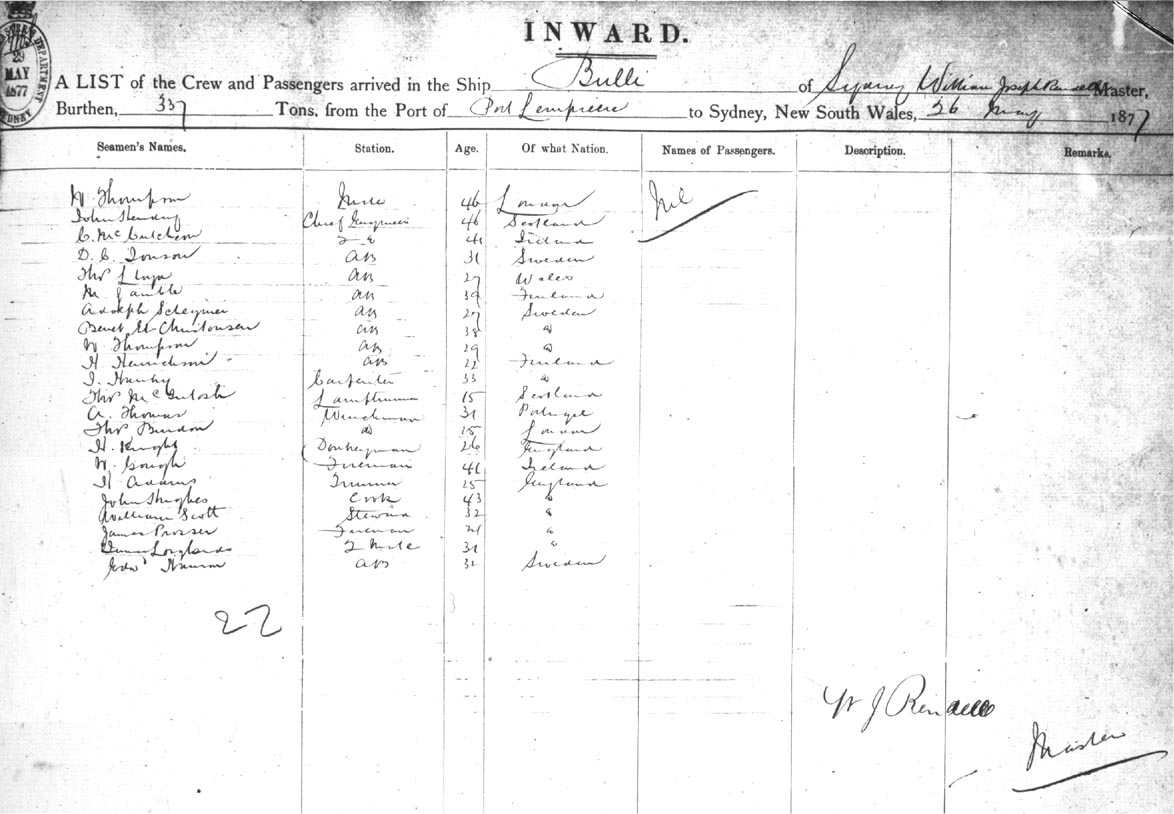 INWARD.
29
MAY
1877
A LIST of the Crew and Passengers arrived in the Ship Bulli of Sydney William Joseph Rendell Master,
Burthen, 337 Tons, from the Port of Port Lempriere to Sydney, New South Wales, 26 May 1877
Seamen's Names. Station. Age. Of what Nation. Names of Passengers. Description. Remarks.
W Thompson Mate 46 London Nil
John Hendry Chief Engineer 46 Scotland
C. McCutcheon 2 E 41 Ireland
D. C. AB 31 Sweden
Thos AB 27 Wales
M Gamble AB 39 Finland
Adolph AB 27 Sweden
AB 38 do
W Thompson AB 29 do
H AB 22 Finland
Carpenter 33 do
Thos McIntosh Lamptrimmer 15 Scotland
A. Thomas Winchman 31 Portugal
Thos do London
H. Knight Donkeyman 26 England
W. Gough Fireman 41 Ireland
H Adams Trimmer 25 England
John Hughes Cook 43 "
William Scott Steward 32 "
James Prosser Fireman "
2 Mate 31 "
Edwd AB 32 Sweden
22
W J Rendell
Master